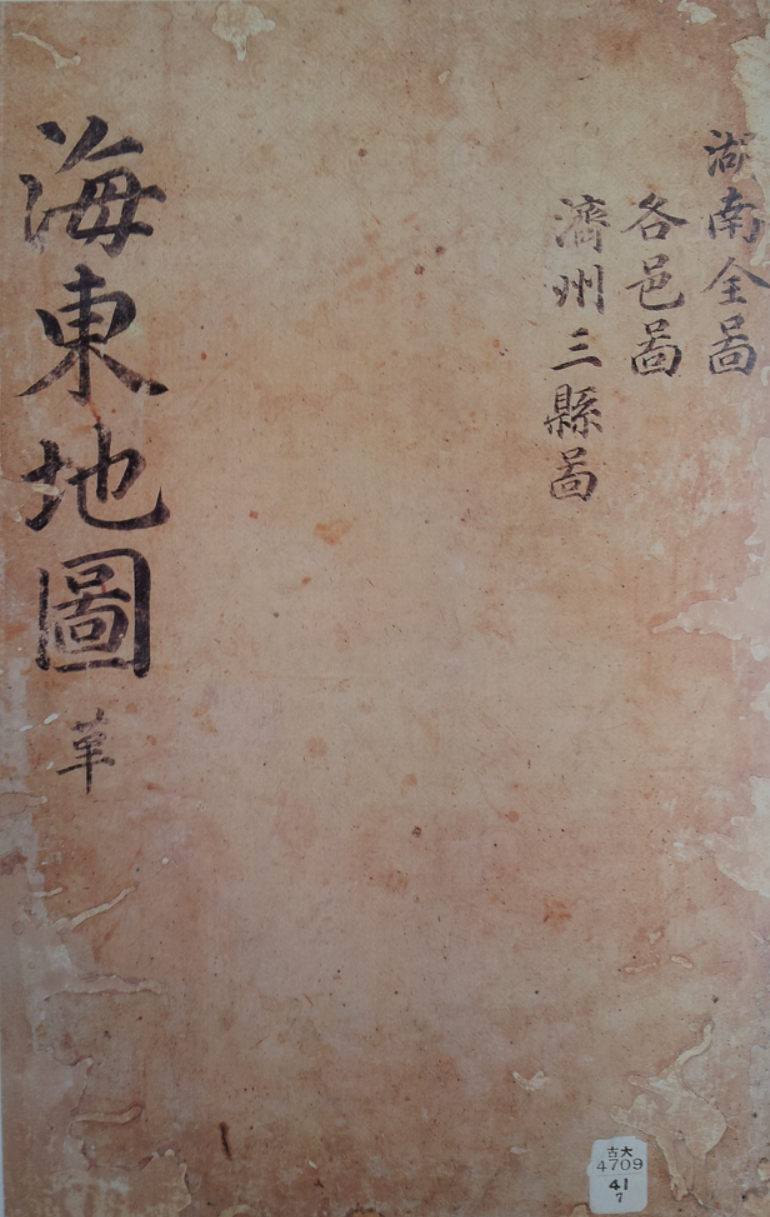 湖南全啚
各邑啚
濟州三縣啚
海東地圖 革
古大
4709
41
7